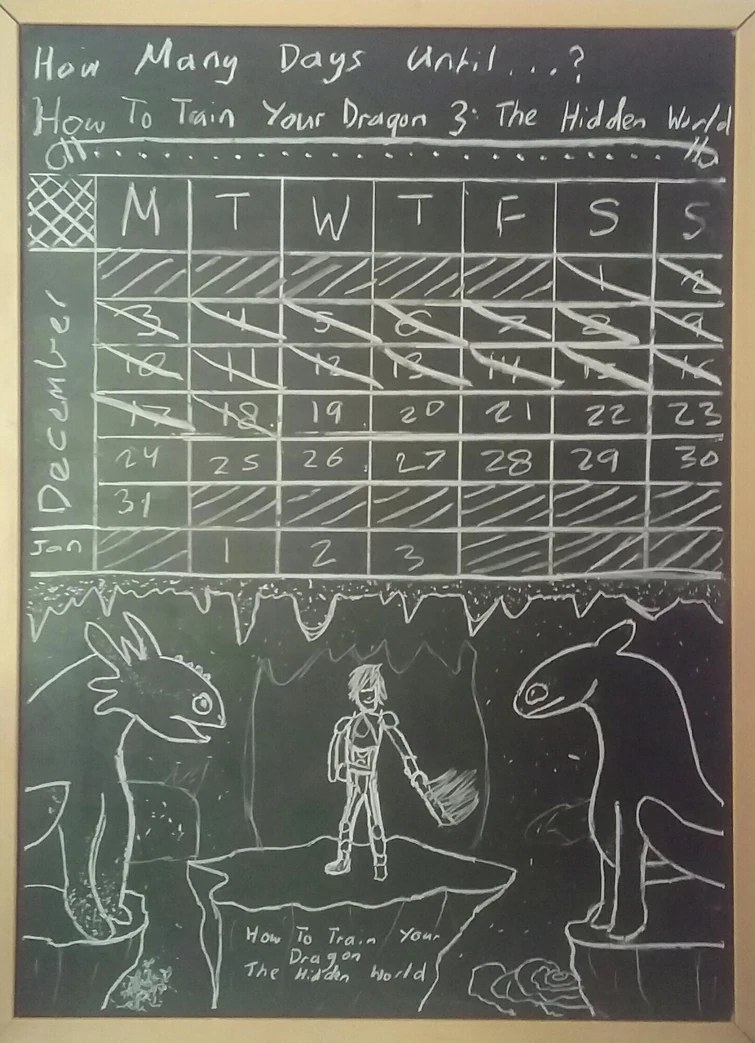 How Many Days Until...?
How To Train Your Dragon 3: The Hidden World
M T W T F S S
December
1 2
3 4 5 6 7 8 9
10 11 12 13 14 15 16
17 18 19 20 21 22 23
24 25 26 27 28 29 30
31
Jan 1 2 3
How To Train Your
Dragon
The Hidden World